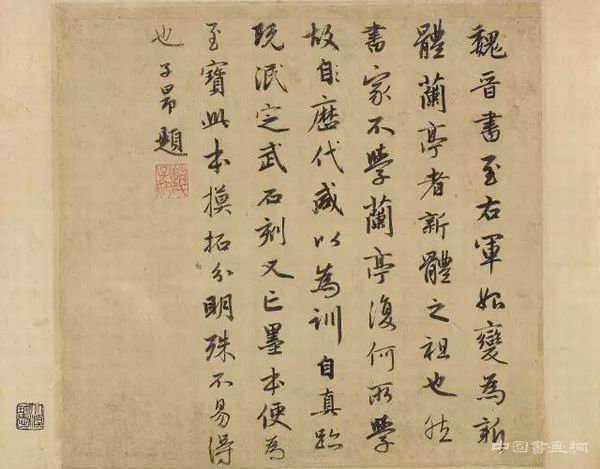 魏晉書至右軍始變為新
體蘭亭者新體之祖也然
書家不學蘭亭復何所學
故自歷代咸以為訓自真跡
既泯定武石刻又亡墨本便為
至寶此本摸拓分明殊不易得
也子昂題
趙氏子昂
中國書畫網